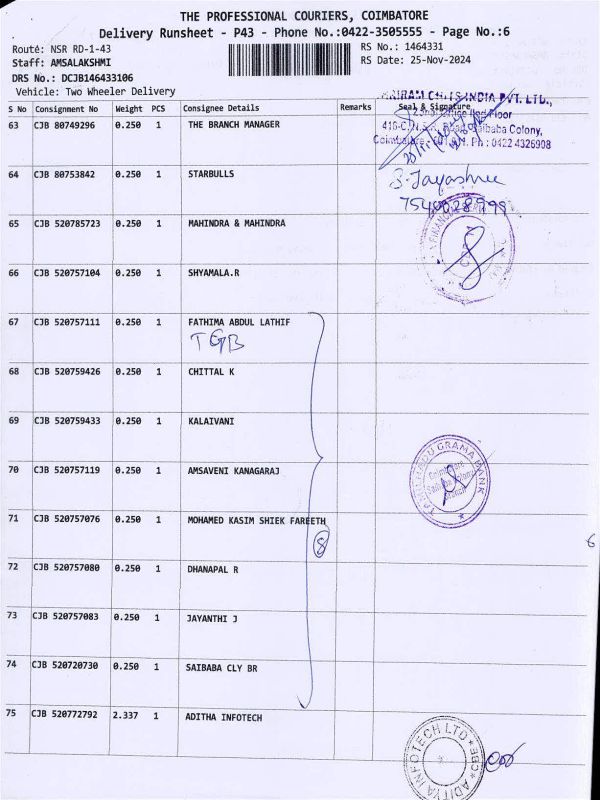 THE PROFESSIONAL COURIERS, COIMBATORE
Delivery Runsheet - P43 - Phone No.:0422-3505555 - Page No.:6
Route: NSR RD-1-43
RS No.: 1464331
Staff: AMSALAKSHMI
RS Date: 25-Nov-2024
DRS No.: DCJB146433106
Vehicle: Two Wheeler Delivery
S No Consignment No Weight PCS Consignee Details Remarks Seal & Signature
63 CJB 80749296 0.250 1 THE BRANCH MANAGER
CHITS INDIA PVT. LTD.,
Floor
Saibaba Colony,
Ph : 0422 4326908
64 CJB 80753842 0.250 1 STARBULLS
S. Jayashree
65 CJB 520785723 0.250 1 MAHINDRA & MAHINDRA
66 CJB 520757104 0.250 1 SHYAMALA.R
67 CJB 520757111 0.250 1 FATHIMA ABDUL LATHIF
TGB
68 CJB 520759426 0.250 1 CHITTAL K
69 CJB 520759433 0.250 1 KALAIVANI
70 CJB 520757119 0.250 1 AMSAVENI KANAGARAJ
TAMIL NADU GRAMA BANK
71 CJB 520757076 0.250 1 MOHAMED KASIM SHIEK FAREETH
8
72 CJB 520757080 0.250 1 DHANAPAL R
73 CJB 520757083 0.250 1 JAYANTHI J
74 CJB 520720730 0.250 1 SAIBABA CLY BR
75 CJB 520772792 2.337 1 ADITHA INFOTECH
ADITYA INFOTECH LTD